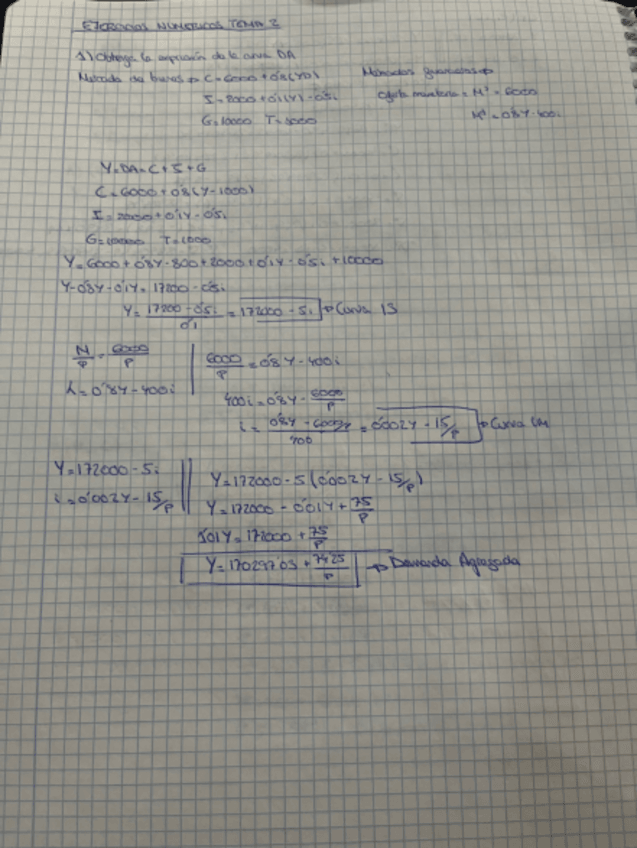 EJERCICIOS NUMERICOS TEMA 2
1) Obtenga la expresión de la curva DA
Mercado de bienes → C=6000+0'8(YD)
I=2000+0'1(Y)-0'5i
G=10000 T=1000
Mercados financieros →
Oferta monetaria = Mˢ = 6000
Mᵈ = 0'8Y-400i
Y=DA=C+I+G
C=6000+0'8(Y-1000)
I=2000+0'1Y-0'5i
G=10000 T=1000
Y=6000+0'8Y-800+2000+0'1Y-0'5i+10000
Y-0'8Y-0'1Y=17200-0'5i
Y=17200-0'5i/0'1=172000-5i → Curva IS
M/P=6000/P
L=0'8Y-400i
6000/P=0'8Y-400i
400i=0'8Y-6000/P
i=0'8Y-6000/P/400=0'002Y-15/P → Curva LM
Y=172000-5i
i=0'002Y-15/P
Y=172000-5(0'002Y-15/P)
Y=172000-0'01Y+75/P
1'01Y=172000+75/P
Y=170297'03+74'25/P → Demanda Agregada